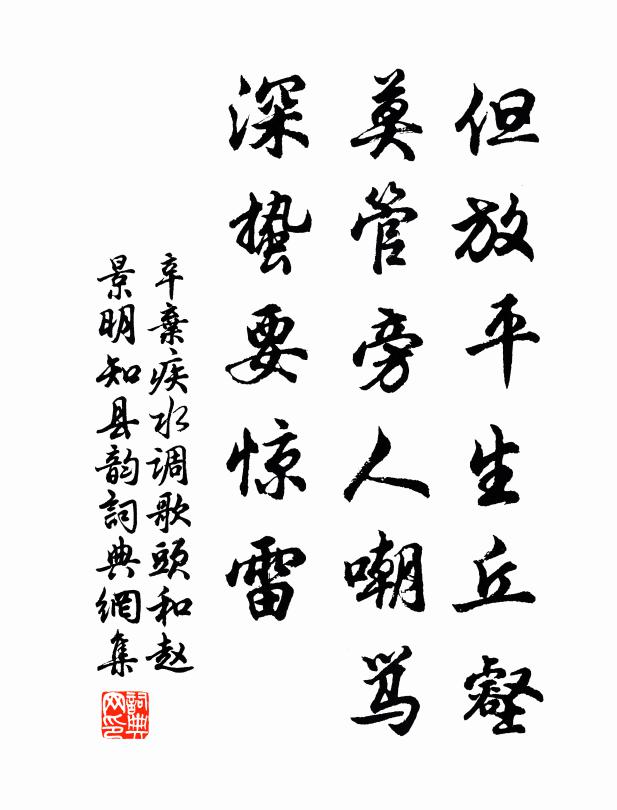 但放平生丘壑
莫管旁人嘲骂
深蛰要惊雷
辛棄疾水调歌頭和赵
景明知县韵詞典網集